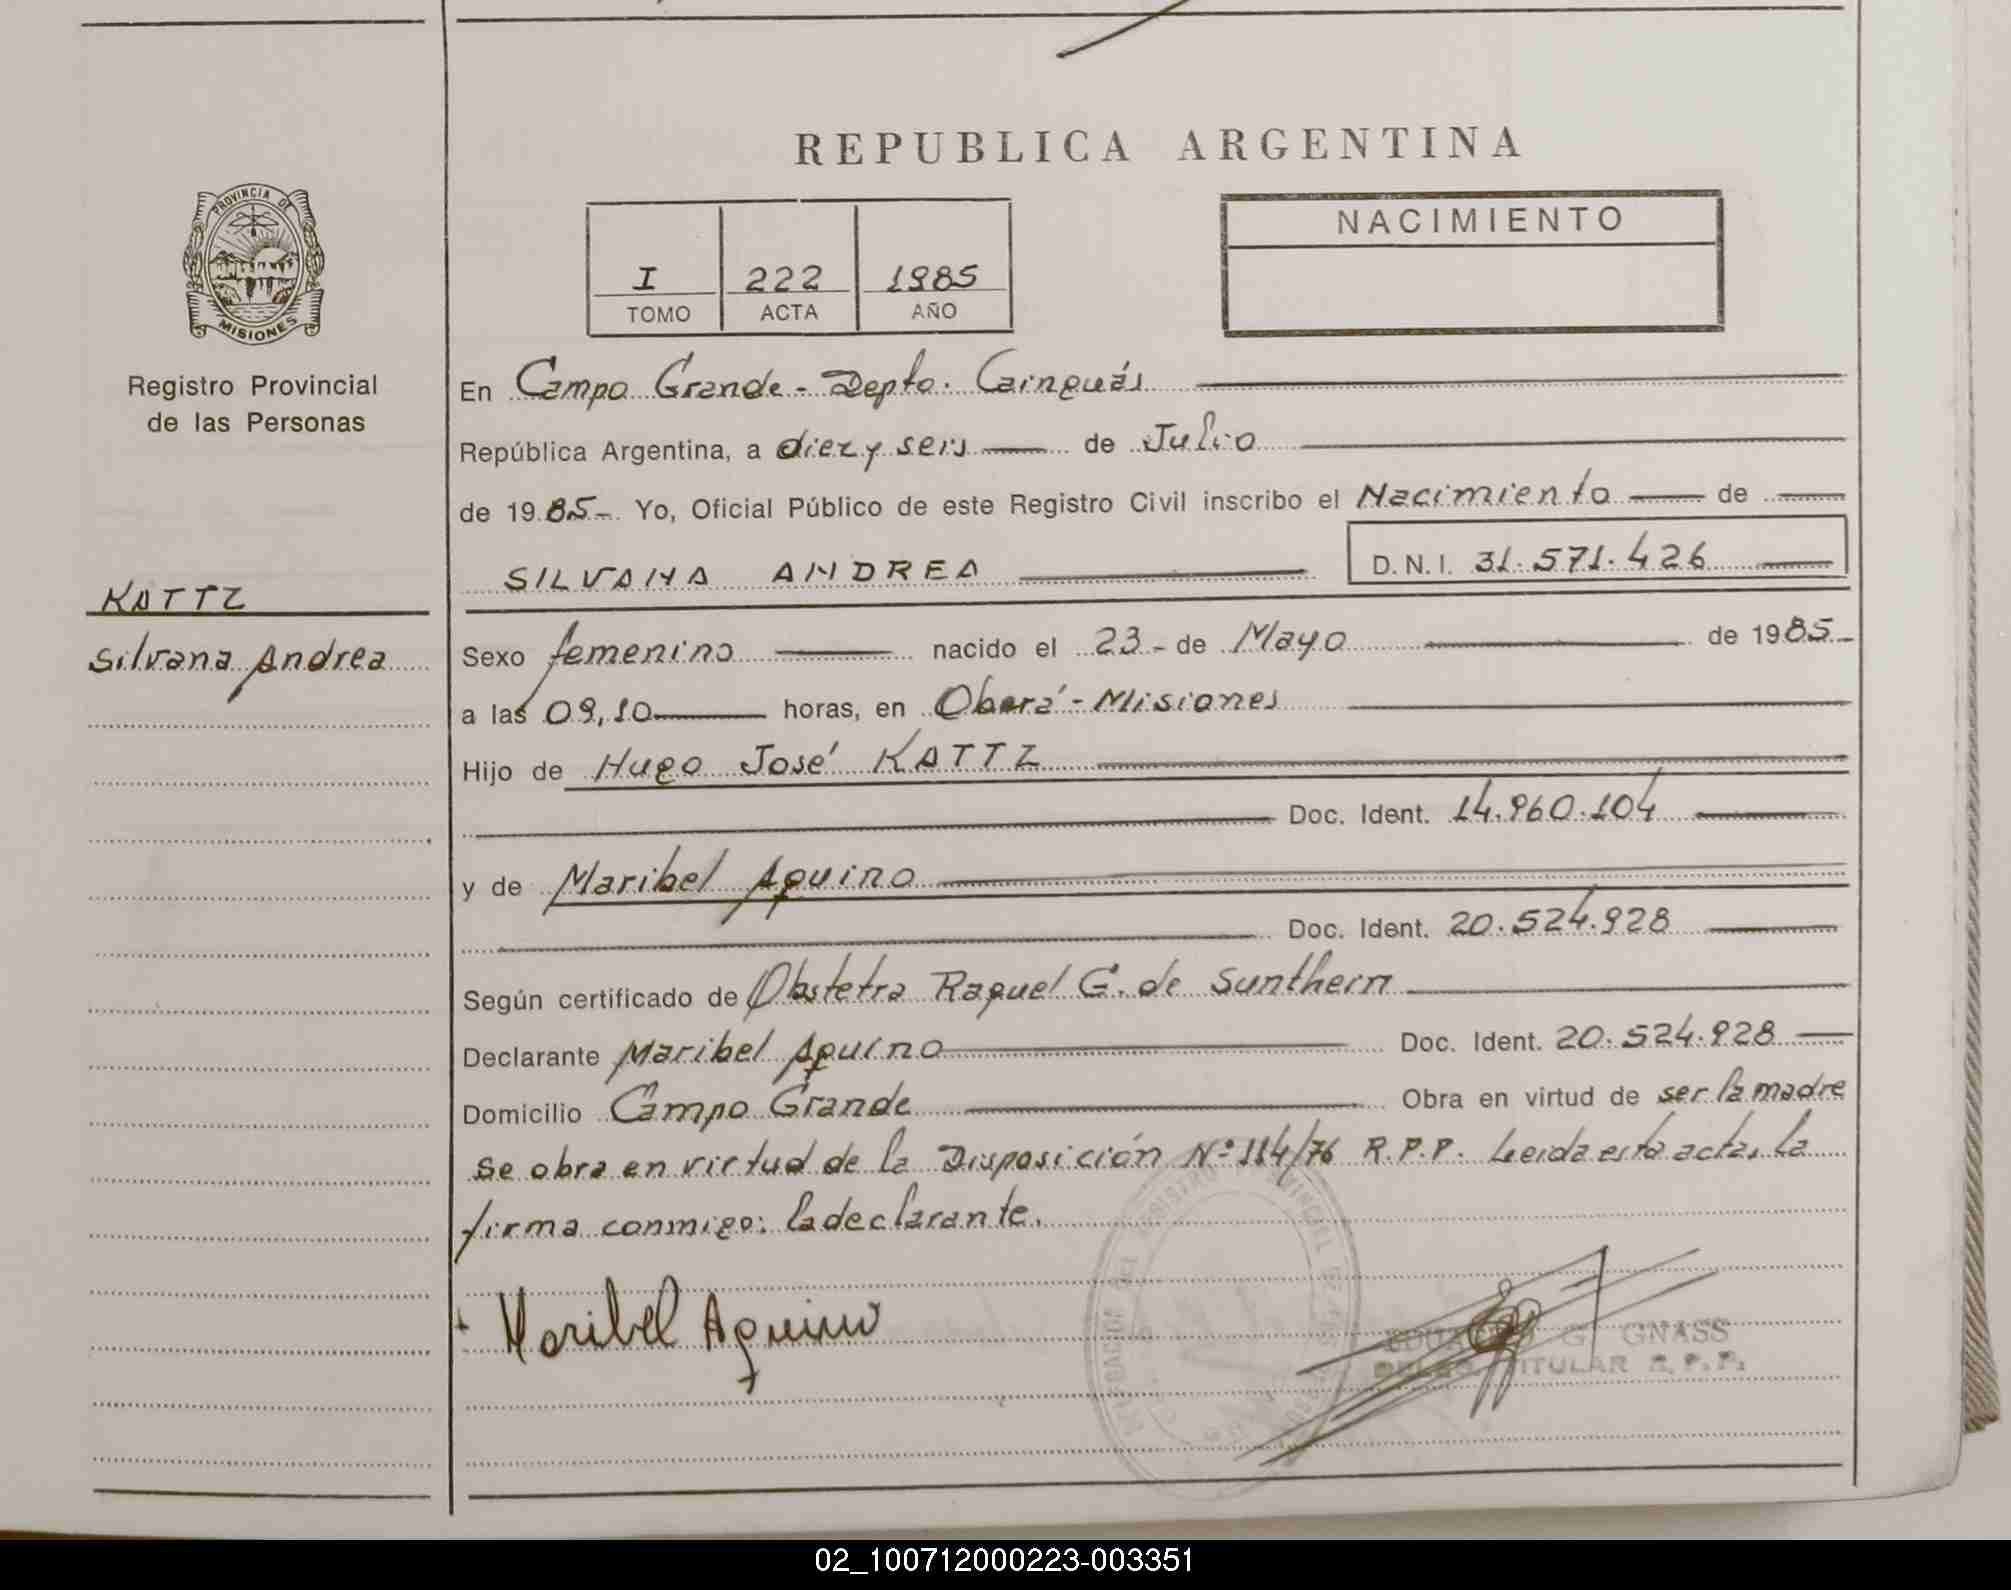 REPUBLICA ARGENTINA
PROVINCIA DE
MISIONES
Registro Provincial
de las Personas
I 222 1985
TOMO ACTA AÑO
NACIMIENTO
En Campo Grande - Depto. Cainguás
República Argentina, a diez y seis de Julio
de 1985 - Yo, Oficial Público de este Registro Civil inscribo el Nacimiento de
SILVANA ANDREA D.N.I. 31.571.426
KATTZ
Silvana Andrea
Sexo femenino nacido el 23 - de Mayo de 1985
a las 09,10 horas, en Oberá - Misiones
Hijo de Hugo José KATTZ
Doc. Ident. 14.960.104
y de Maribel Aquino
Doc. Ident. 20.524.928
Según certificado de Obstetra Raquel G. de Sunthern
Declarante Maribel Aquino Doc. Ident. 20.524.928
Domicilio Campo Grande Obra en virtud de ser la madre
se obra en virtud de la Disposición Nº 114/76 R.P.P. Leida esta acta, la
firma conmigo: la declarante.
Maribel Aquino
EDUARDO G. GNASS
TITULAR R.P.P.
02_100712000223-003351